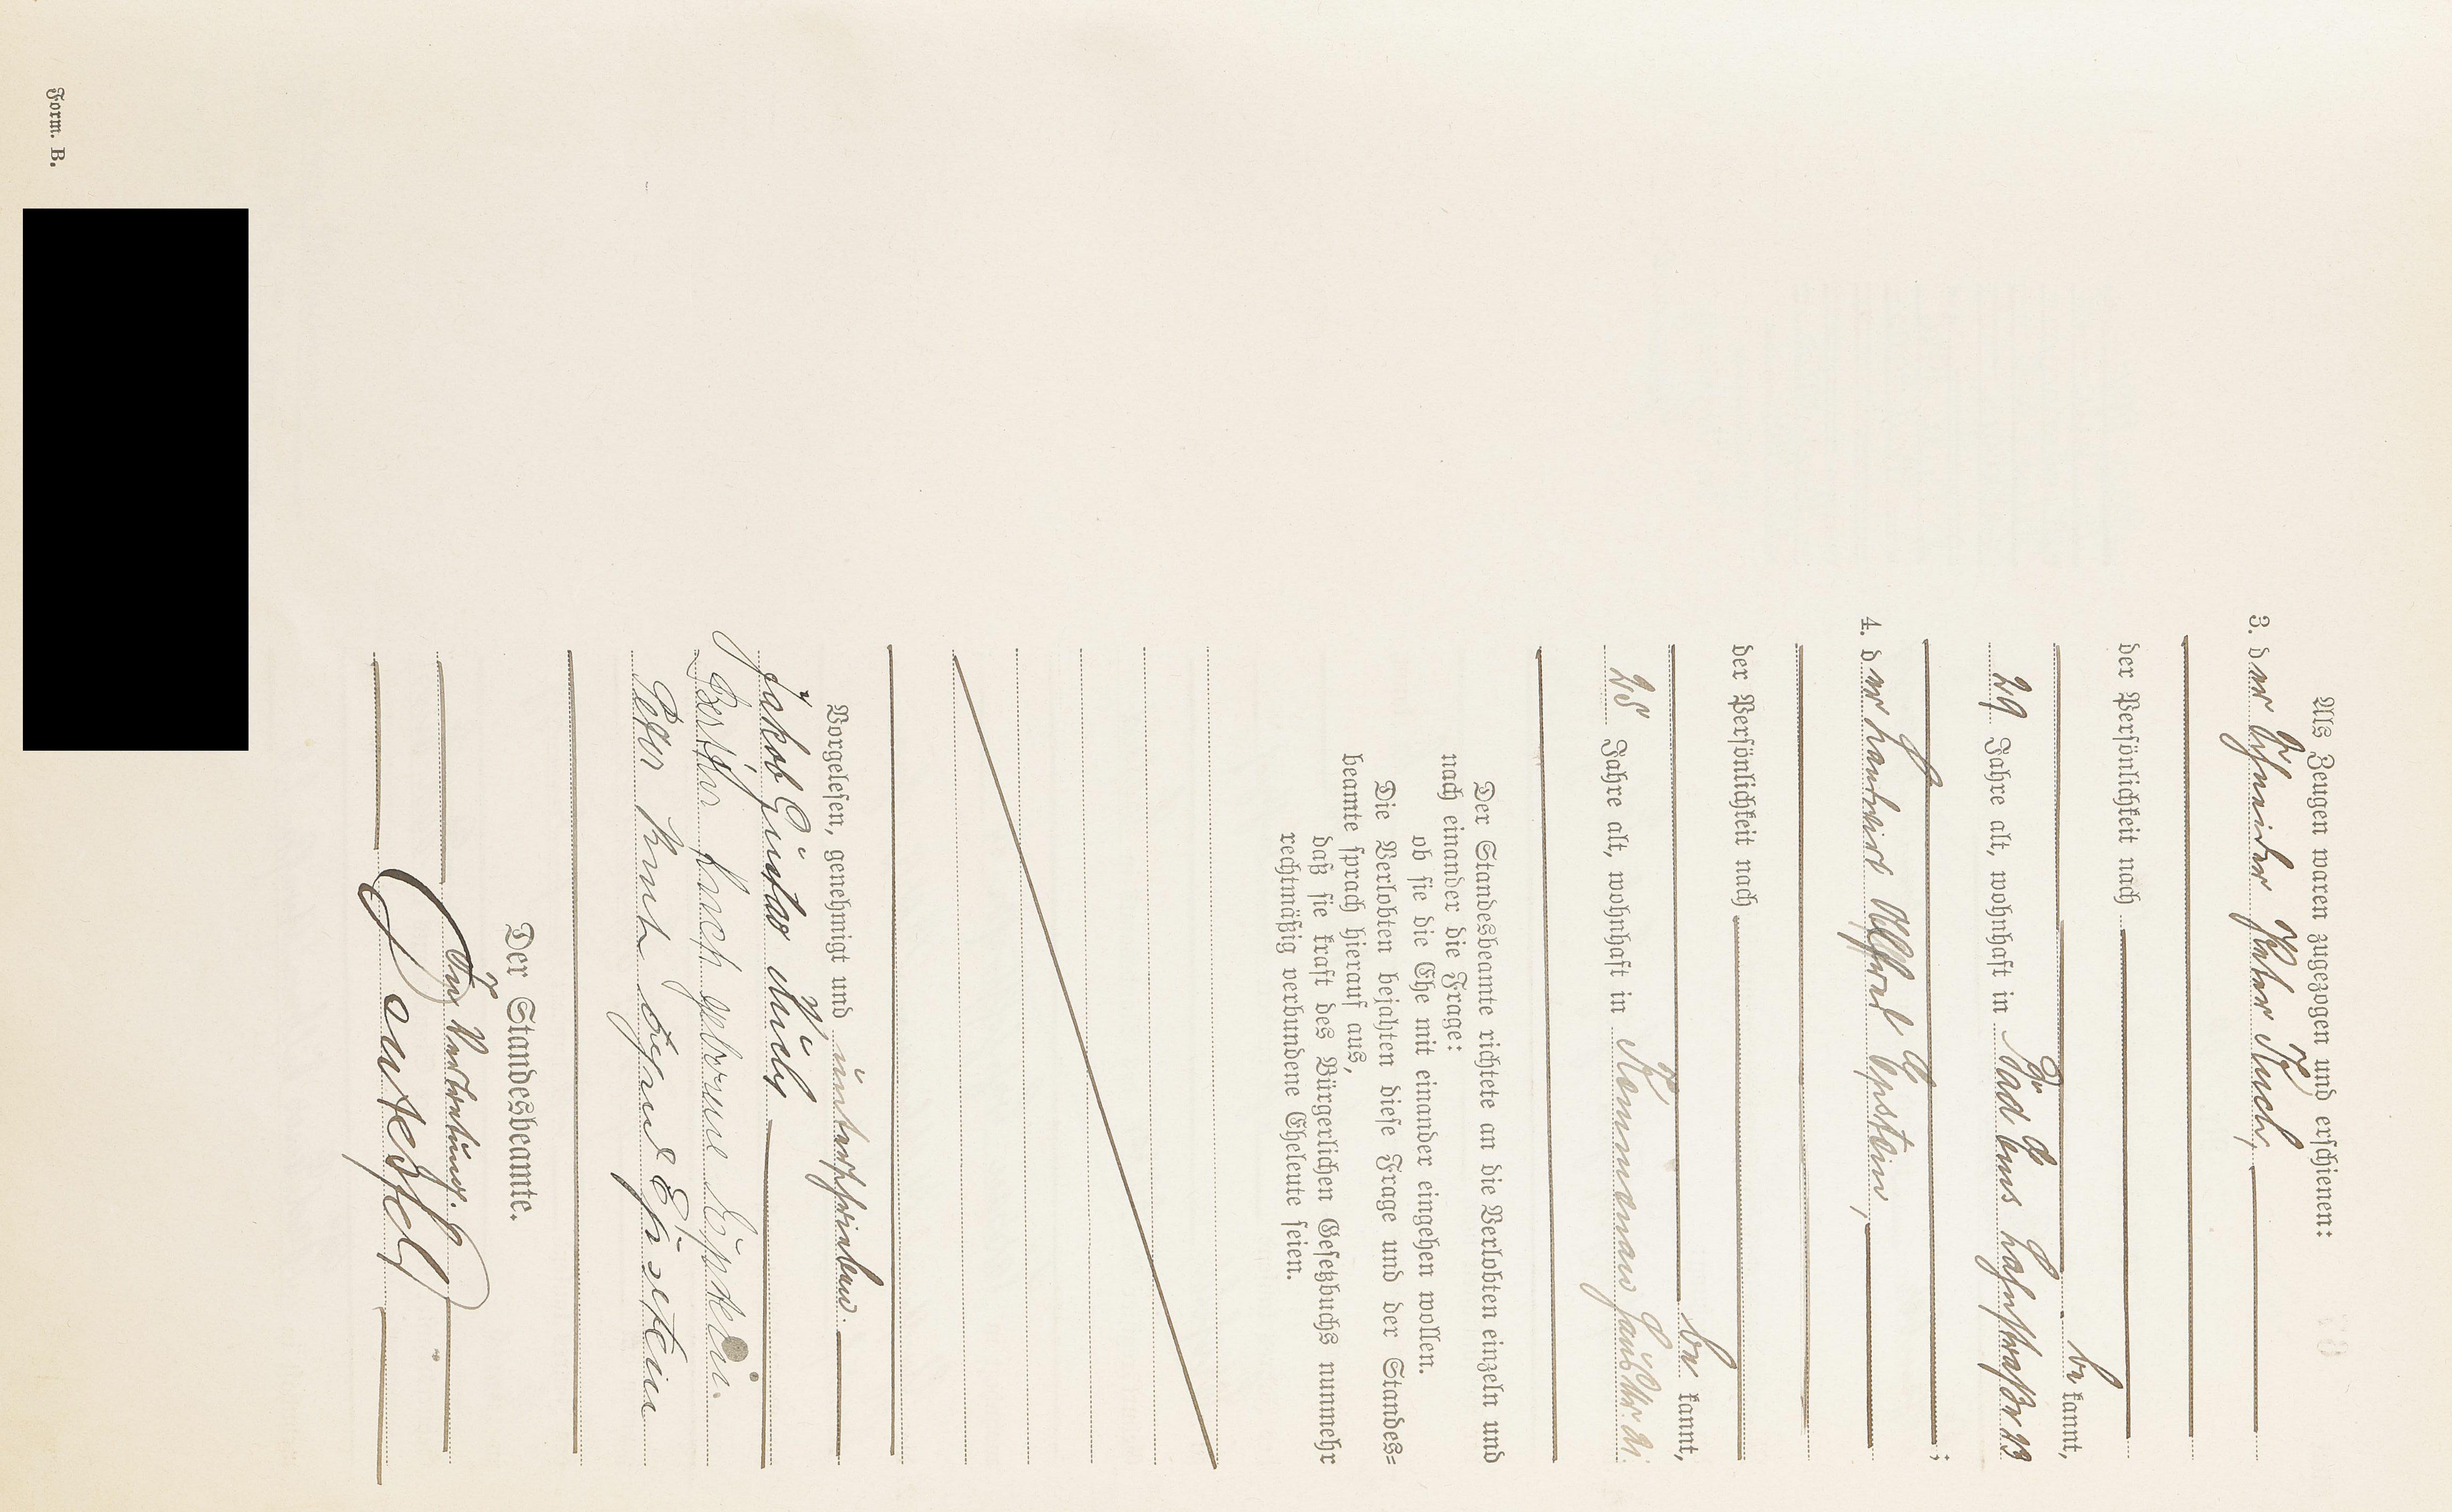 Als Zeugen waren zugezogen und erschienen:
3. der Schneider Peter Kuch,
der Persönlichkeit nach
be kannt,
29 Jahre alt, wohnhaft in Bad Ems Hahnstraße 23
;
4. der Landwirt Alfred Epstein,
der Persönlichkeit nach
be kannt,
25 Jahre alt, wohnhaft in Kemmenau Haus Nr. 21.
Der Standesbeamte richtete an die Verlobten einzeln und
nach einander die Frage:
ob sie die Ehe mit einander eingehen wollen.
Die Verlobten bejahten diese Frage und der Standes-
beamte sprach hierauf aus,
daß sie kraft des Bürgerlichen Gesetzbuchs nunmehr
rechtmäßig verbundene Eheleute seien.
Vorgelesen, genehmigt und unterschrieben.
Jakob Gustav Kuch
Berta Kuch geborene Epstein.
Peter Kuch Alfred Epstein
Der Standesbeamte.
In Vertretung.